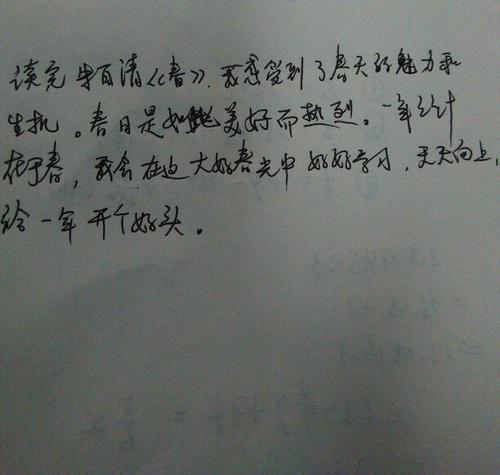 读完朱自清《春》,我感受到了春天的魅力和
生机。春日是如此美好而热烈。一年之计
在于春,我会在这大好春光中好好学习,天天向上,
给一年开个好头。